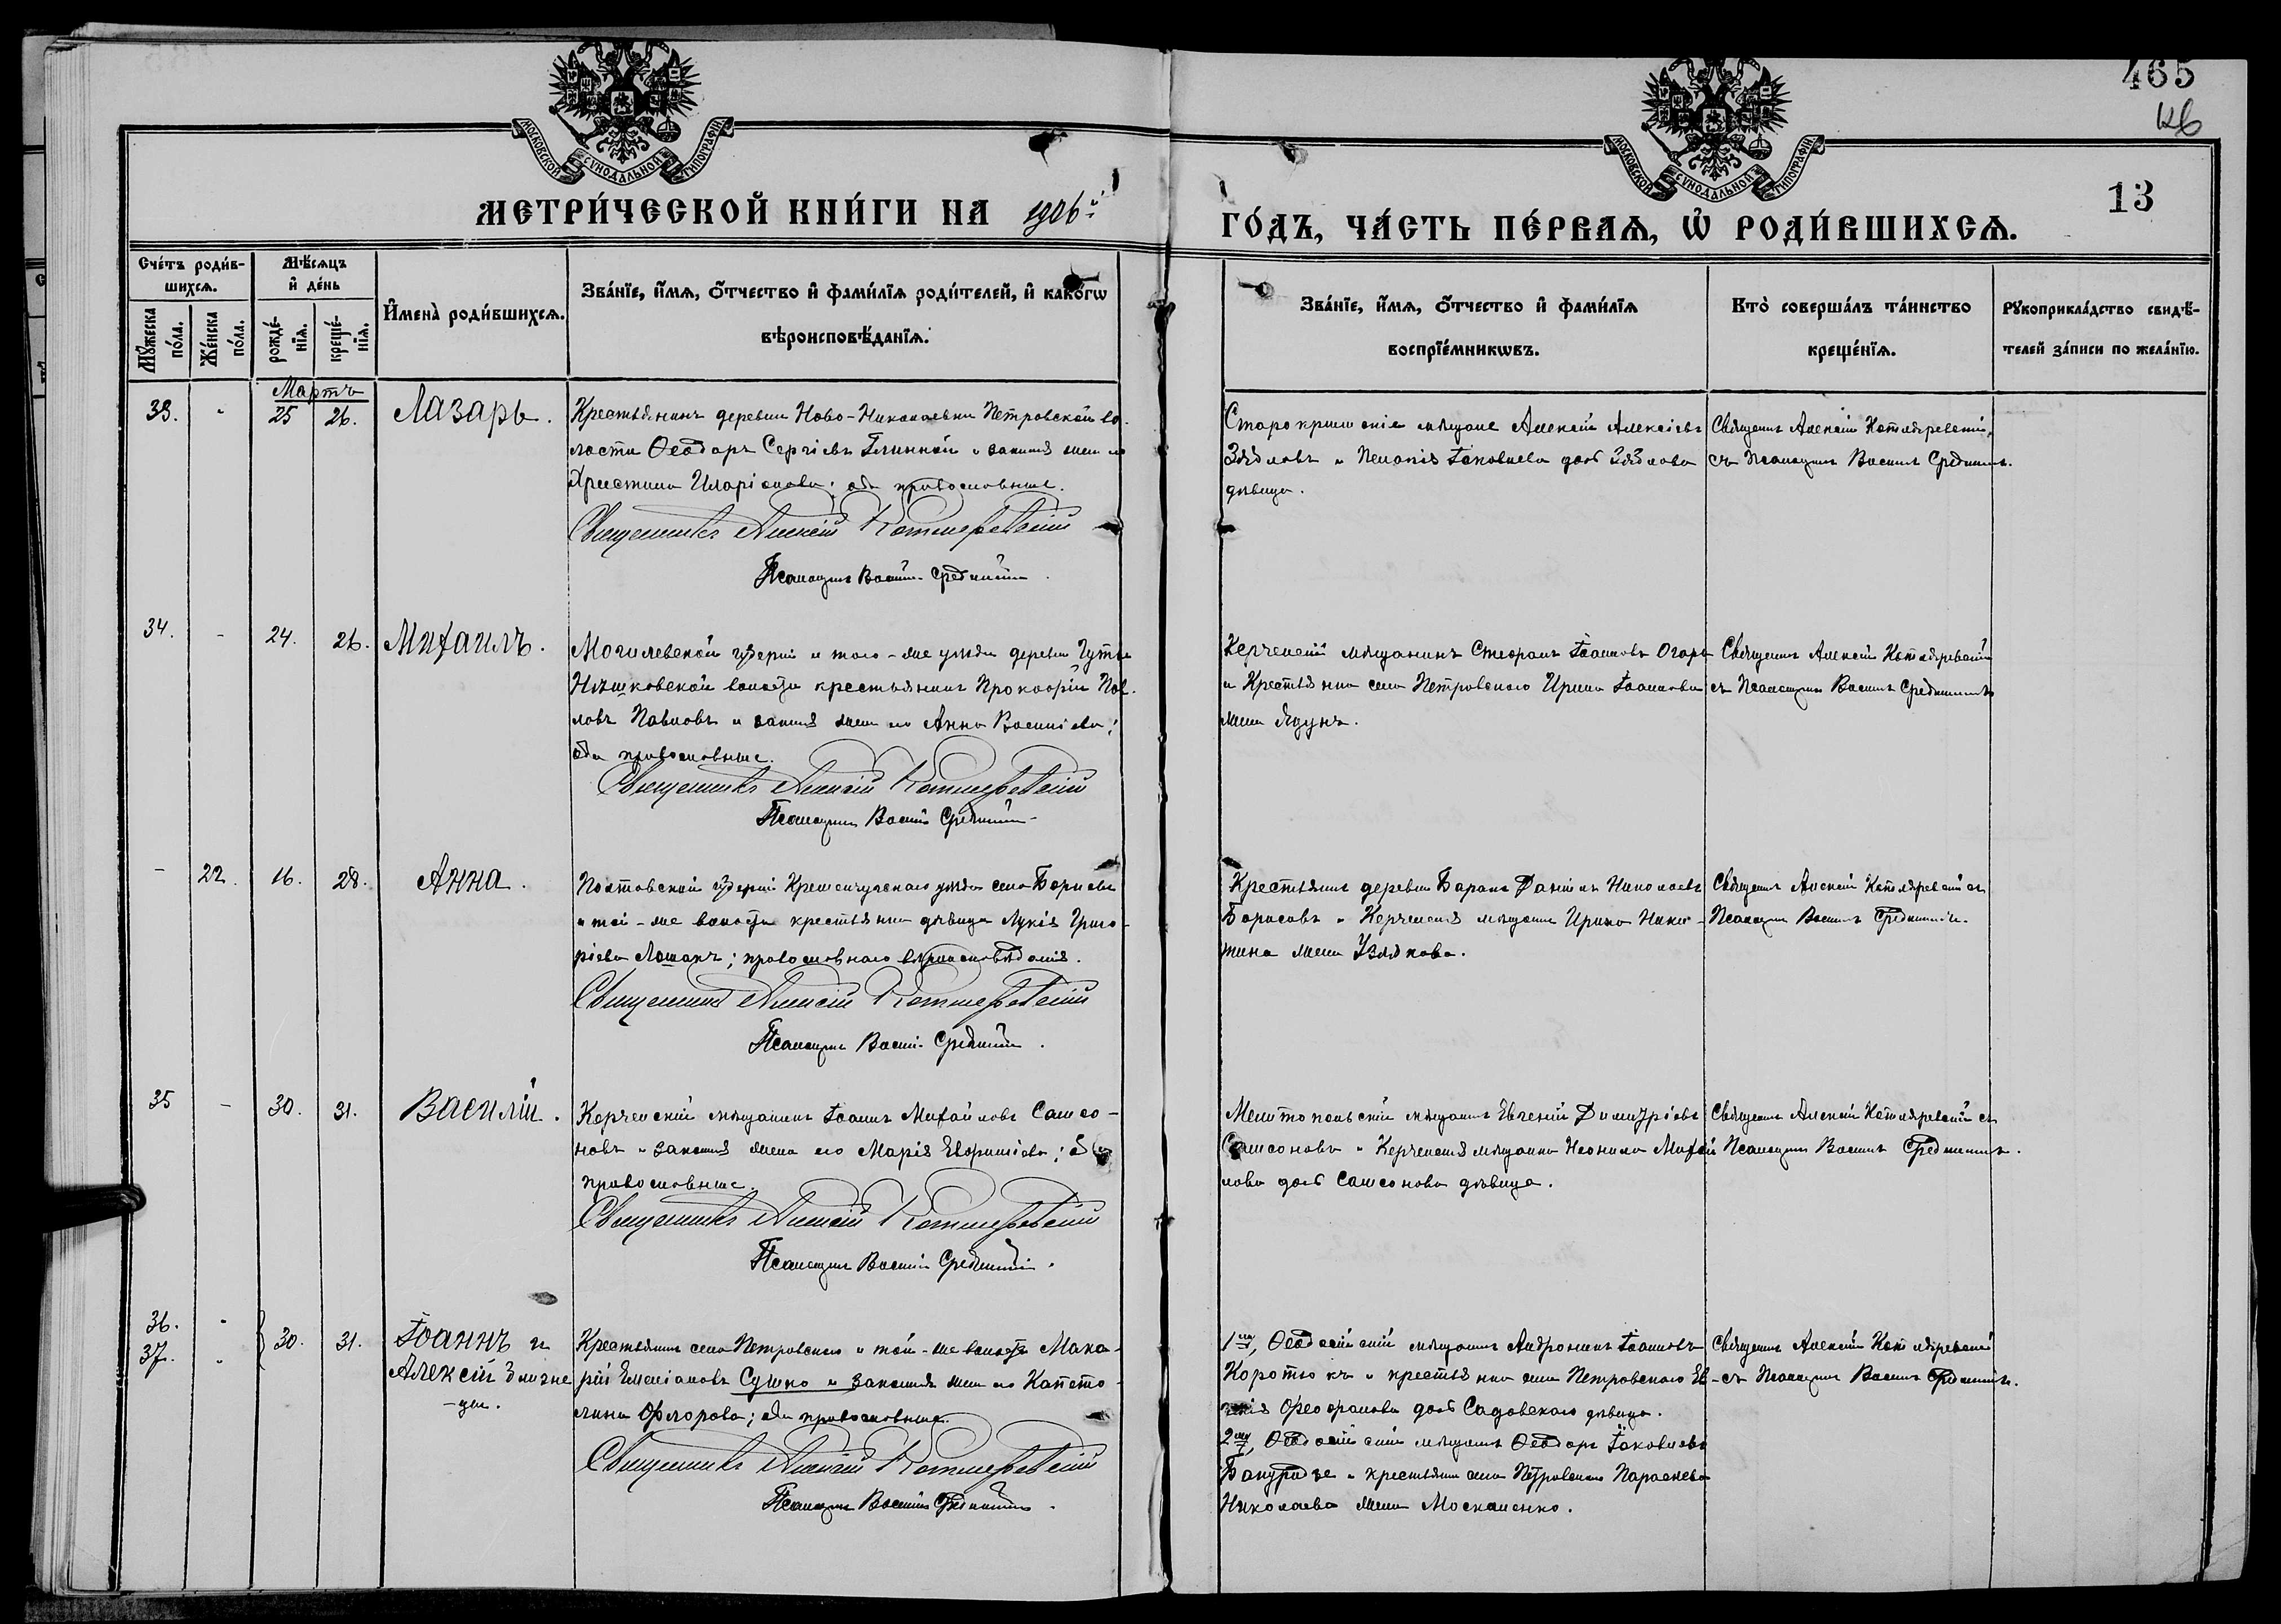 465
13
МОСКОВСКОЙ СѴНОДАЛЬНОЙ ТИПОГРАФІИ.
МОСКОВСКОЙ СѴНОДАЛЬНОЙ ТИПОГРАФІИ.
МЕТРИ́ЧЕСКОЙ КНИ́ГИ НА 1906й
ГО́ДЪ, ЧА́СТЬ ПЕ́РВАѦ, Ѡ҆ РОДИ́ВШИХСѦ.
Сче́тъ роди́в-
шихсѧ.
Мꙋ́жеска по́ла.
Же́нска по́ла.
Мѣ́сѧцъ
и҆ де́нь
рожде́-нїѧ.
креще́-нїѧ.
И҆мена̀ роди́вшихсѧ.
Зва́нїе, и҆́мѧ, ѻ҆́тчество и҆ фами́лїѧ роди́телей, и҆ како́гѡ
вѣроисповѣ́данїѧ.
Зва́нїе, и҆́мѧ, ѻ҆́тчество и҆ фами́лїѧ
воспрїе́мникѡвъ.
Кто̀ соверша́лъ та́инство
креще́нїѧ.
Рꙋкоприкла́дство свидѣ́-
телей за́писи по жела́нїю.
Мартъ
33. - 25 26. Лазарь.
Крестьянинъ деревни Ново-Николаевки Петровской во-
лости Ѳеодоръ Сергіевъ Глинкой и законная жена его
Христина Иларіонова; оба православные.
Священникъ Алексій Котляревскій
Псаломщикъ Василій Срединскій.
Старокрымскіе мѣщане Алексій Алексіевъ
Зябловъ и Пелагія Іаковлева дочь Зяблова
дѣвица.
Священникъ Алексій Котляревскій,
съ Псаломщик. Василіемъ Срединскимъ.
34. - 24. 26. Михаилъ.
Могилевской губерніи и того-же уѣзда деревни Гутки
Нѣжковской волости крестьянинъ Прокофій Пав-
ловъ Павловъ и законная жена его Анна Василіева;
оба православные.
Священникъ Алексій Котляревскій
Псаломщикъ Василій Срединскій
Керченскій мѣщанинъ Стефанъ Іоанновъ Огарь
и Крестьянка села Петровскаго Ирина Іоаннова
жена Ядунъ.
Священникъ Алексій Котляревскій
съ Псаломщик. Василіемъ Срединскимъ
- 22. 16. 28. Анна.
Полтавской губерніи Кременчугскаго уѣзда села Борисовъ
и той-же волости крестьянка дѣвица Лукія Григо-
ріева Лошакъ; православнаго вѣроисповѣданія.
Священникъ Алексій Котляревскій
Псаломщикъ Василій Срединскій.
Крестьянинъ деревни Баракъ Даніилъ Николаевъ
Борисовъ и Керченская мѣщанка Ирина Ники-
тина жена Узлякова.
Священникъ Алексій Котляревскій съ
Псаломщик. Василіемъ Срединскимъ.
35 - 30. 31. Василій.
Керченскій мѣщанинъ Іоаннъ Михайловъ Самсо-
новъ и законная жена его Марія Евфиміева; оба
православные.
Священникъ Алексій Котляревскій
Псаломщикъ Василій Срединскій.
Мелитопольскій мѣщанинъ Евгеній Димитріевъ
Самсоновъ и Керченская мѣщанка Неонила Михай
лова дочь Самсонова дѣвица.
Священникъ Алексій Котляревскій съ
Псаломщик. Василіемъ Срединскимъ.
36. - 30. 31. Іоаннъ и
37. - Алексій близне
-цы.
Крестьянинъ села Петровскаго и той-же волости Мака-
рій Емеліановъ Сушко и законная жена его Капето-
лина Флорова; оба православные.
Священникъ Алексій Котляревскій
Псаломщикъ Василій Срединскій.
1го, Ѳеодосійскій мѣщанинъ Андроникъ Іоанновъ
Коротюкъ и крестьянка села Петровскаго Ев-
генія Феофанова дочь Садовскаго дѣвица.
2го, Ѳеодосійскій мѣщанинъ Ѳеодоръ Іаковлевъ
и крестьянка села Петровскаго Параскева
Николаева жена Москаленко.
Священникъ Алексій Котляревскій
съ Псаломщик. Василіемъ Срединскимъ.